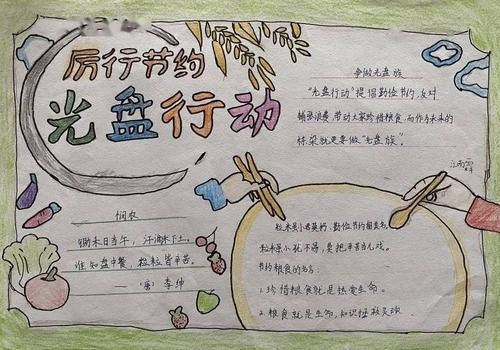 厉行节约
光盘行动
争做光盘族
"光盘行动"提倡勤俭节约,反对
铺张浪费,带动大家珍惜粮食,而作为未来的
栋梁就更要做"光盘族"。
悯农
锄禾日当午,汗滴禾下土。
谁知盘中餐,粒粒皆辛苦。
——(唐)李绅
粒米虽小君莫扔,勤俭节约留美名。
粒米虽小犹不易,莫把辛苦当儿戏。
节约粮食的名言:
1.珍惜粮食就是热爱生命。
2.粮食就是生命,知识拯救灵魂.